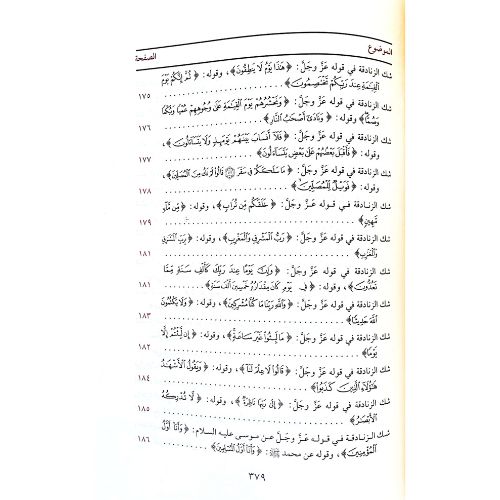 الموضوع الصفحة
شك الزنادقة في قوله عَزَّ وجَلَّ: ﴿هَٰذَا يَوْمُ لَا يَنطِقُونَ﴾، وقوله: ﴿ثُمَّ إِنَّكُمْ يَوْمَ
ٱلْقِيَٰمَةِ عِندَ رَبِّكُمْ تَخْتَصِمُونَ﴾ ١٧٥
شك الزنادقة في قوله عَزَّ وجَلَّ: ﴿وَنَحْشُرُهُمْ يَوْمَ ٱلْقِيَٰمَةِ عَلَىٰ وُجُوهِهِمْ عُمْيًا وَبُكْمًا
وَصُمًّا﴾ وقوله: ﴿وَنَادَىٰٓ أَصْحَٰبُ ٱلنَّارِ﴾ ١٧٦
شك الزنادقة في قوله عَزَّ وجَلَّ: ﴿فَلَآ أَنسَابَ بَيْنَهُمْ يَوْمَئِذٍ وَلَا يَتَسَآءَلُونَ﴾،
وقوله: ﴿فَأَقْبَلَ بَعْضُهُمْ عَلَىٰ بَعْضٍ يَتَسَآءَلُونَ﴾ ١٧٧
شك الزنادقة في قوله عَزَّ وجَلَّ: ﴿مَا سَلَكَكُمْ فِي سَقَرَ قَالُوا۟ لَمْ نَكُ مِنَ ٱلْمُصَلِّينَ﴾،
وقوله: ﴿فَوَيْلٌ لِّلْمُصَلِّينَ﴾ ١٧٨
شك الزنادقة في قوله عَزَّ وجَلَّ: ﴿خَلَقَكُم مِّن تُرَابٍ﴾، وقوله: ﴿مِّن مَّآءٍ
مَّهِينٍ﴾ ١٧٩
شك الزنادقة في قوله عَزَّ وجَلَّ: ﴿رَبُّ ٱلْمَشْرِقِ وَٱلْمَغْرِبِ﴾، وقوله: ﴿رَبِّ ٱلْمَشَٰرِقِ
وَٱلْمَغَٰرِبِ﴾ ١٨١
شك الزنادقة في قوله عَزَّ وجَلَّ: ﴿وَإِنَّ يَوْمًا عِندَ رَبِّكَ كَأَلْفِ سَنَةٍ مِّمَّا
تَعُدُّونَ﴾، وقوله: ﴿فِي يَوْمٍ كَانَ مِقْدَارُهُ خَمْسِينَ أَلْفَ سَنَةٍ﴾ ١٨١
شك الزنادقة في قوله عَزَّ وجَلَّ: ﴿وَٱللَّهِ رَبِّنَا مَا كُنَّا مُشْرِكِينَ﴾، وقوله: ﴿وَلَا يَكْتُمُونَ
ٱللَّهَ حَدِيثًا﴾ ١٨٣
شك الزنادقة في قوله عَزَّ وجَلَّ: ﴿مَا لَبِثُوا۟ غَيْرَ سَاعَةٍ﴾، وقوله: ﴿إِن لَّبِثْتُمْ إِلَّا
يَوْمًا﴾ ١٨٢
شك الزنادقة في قوله عَزَّ وجَلَّ: ﴿قَالُوا۟ لَا عِلْمَ لَنَآ﴾، وقوله: ﴿وَيَقُولُ ٱلْأَشْهَٰدُ
هَٰٓؤُلَآءِ ٱلَّذِينَ كَذَبُوا۟﴾ ١٨٤
شك الزنادقة في قوله عَزَّ وجَلَّ: ﴿إِلَىٰ رَبِّهَا نَاظِرَةٌ﴾، وقوله: ﴿لَّا تُدْرِكُهُ
ٱلْأَبْصَٰرُ﴾ ١٨٥
شك الزنادقة في قوله عَزَّ وجَلَّ عن موسى عليه السلام: ﴿وَأَنَا۠ أَوَّلُ
ٱلْمُؤْمِنِينَ﴾، وقوله عن محمد ﷺ: ﴿وَأَنَا۠ أَوَّلُ ٱلْمُسْلِمِينَ﴾ ١٨٦
٣٧٩